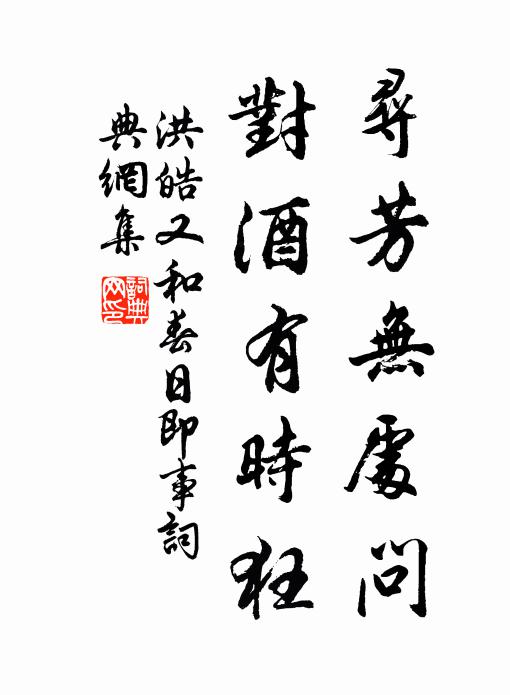 尋芳無處問
對酒有時狂
洪皓又和春日即事詞
典網集
詞典網印